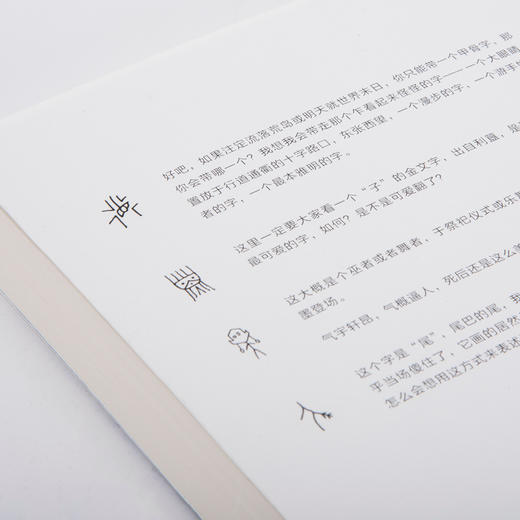 好吧，如果注定流落荒岛或明天就世界末日，你只能带一个甲骨字，那
你会带哪一个？我想我会带走那个乍看起来怪怪的字——一个大眼睛
置放于行道通衢的十字路口，东张西望，一个漫步的字，一个游手
者的字，一个最本雅明的字。
这里一定要大家看一个“子”的金文字，出自利簋，是
最可爱的字，如何？是不是可爱翻了？
这大概是个巫者或者舞者，于祭祀仪式或乐
墨登场。
气宇轩昂，气概逼人，死后还是这么
这个字是“尾”，尾巴的尾，我
乎当场傻住了，它画的居然
怎么会想用这方式来表述